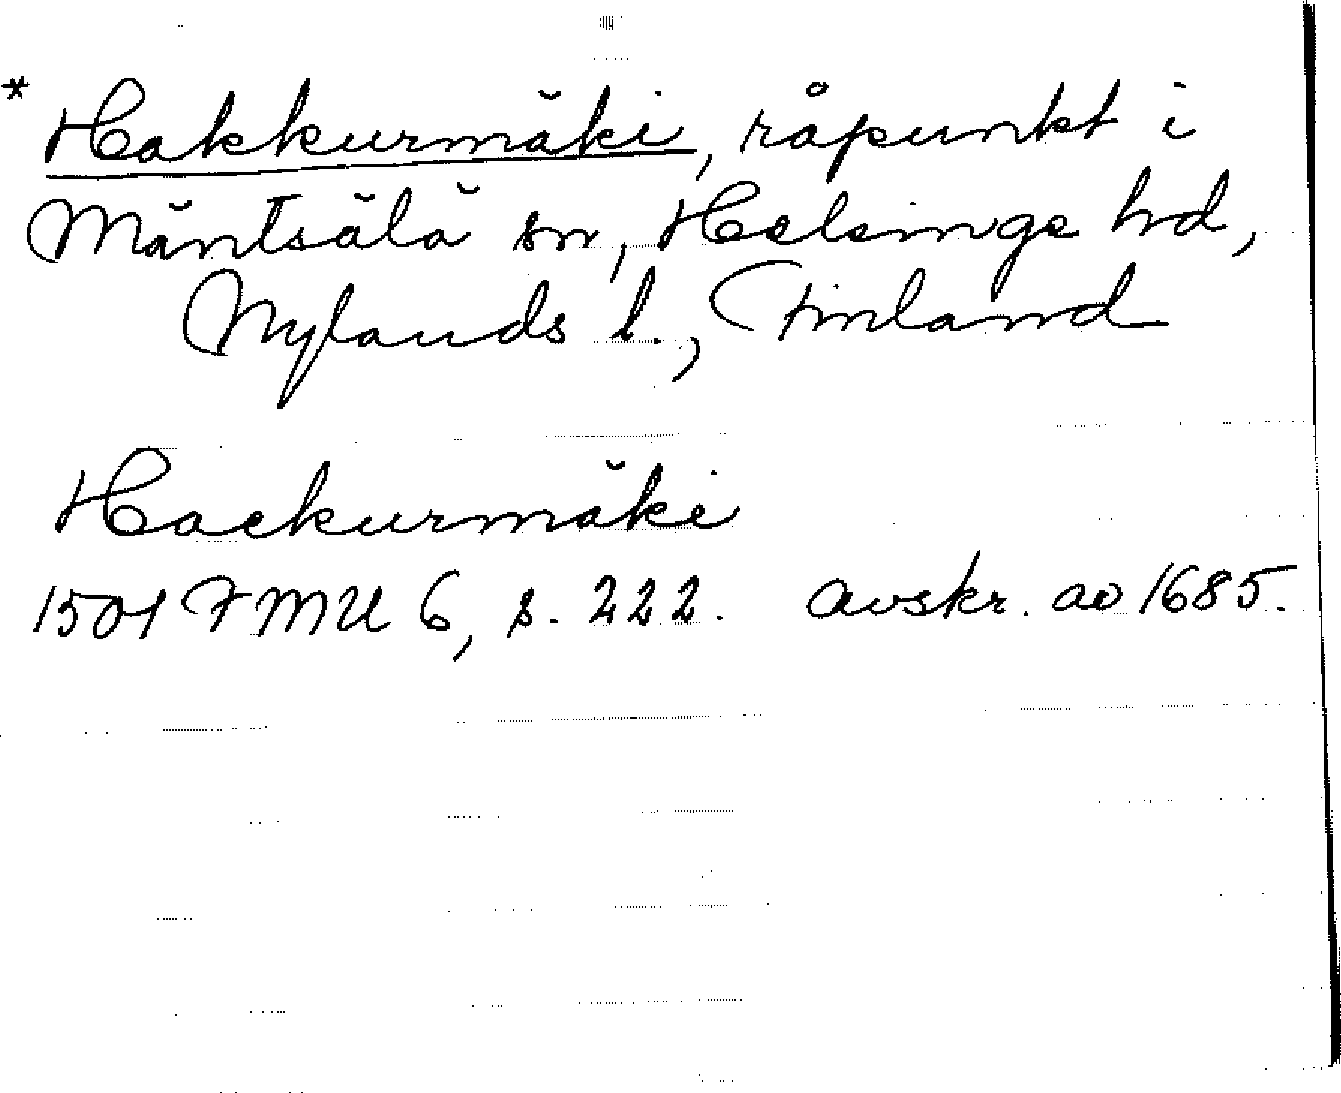 * Hakkurmäki, råpunkt i
Mäntsälä sn, Helsinge hd,
Nylands l., Finland
Hackurmäki
1501 FMU 6, s. 222. avskr. ao 1685.